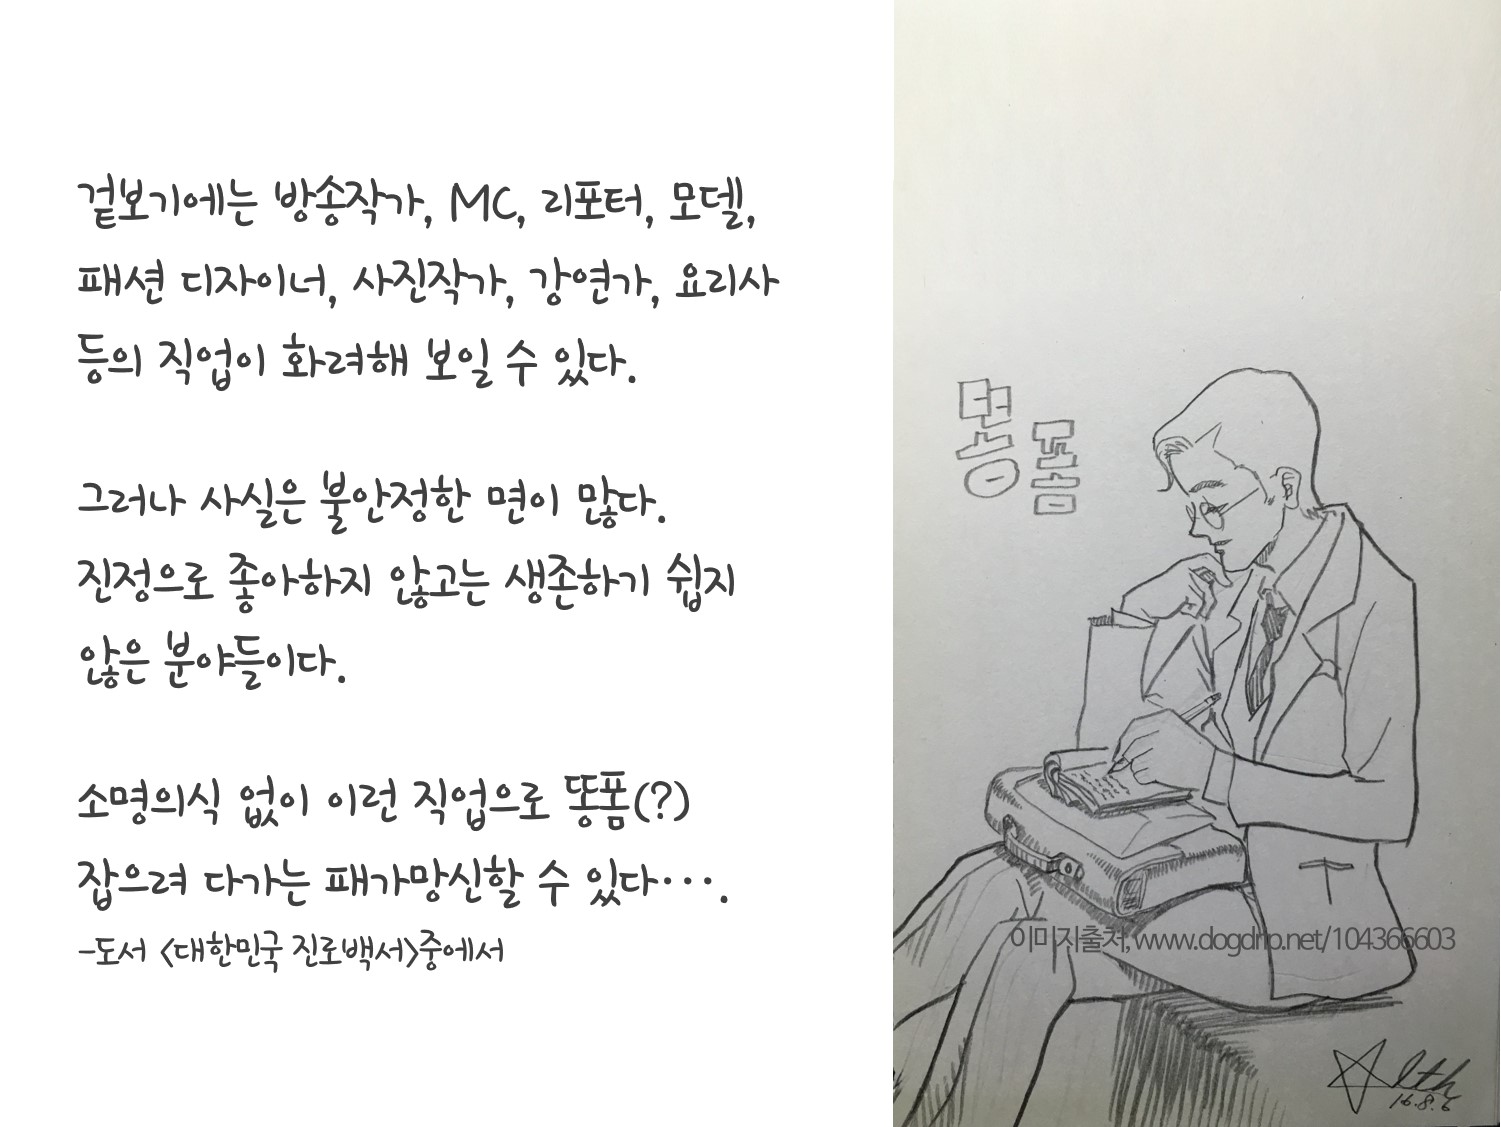 겉보기에는 방송작가, MC, 리포터, 모델,
패션 디자이너, 사진작가, 강연가, 요리사
등의 직업이 화려해 보일 수 있다.
그러나 사실은 불안정한 면이 많다.
진정으로 좋아하지 않고는 생존하기 쉽지
않은 분야들이다.
소명의식 없이 이런 직업으로 똥폼(?)
잡으려 다가는 패가망신할 수 있다···.
-도서 <대한민국 진로백서>중에서
똥
폼
이미지출처, www.dogdrip.net/104366603
lth
16.8.6